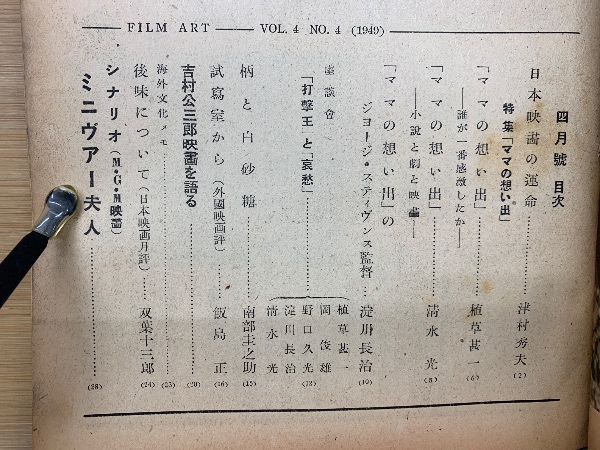 FILM ART —— VOL. 4 NO. 4 (1949)
四月號 目次
日本映畫の運命………津村秀夫 (2)
特集「ママの想い出」
「ママの想い出」………植草甚一 (6)
——誰が一番感激したか——
「ママの想い出」………清水光 (8)
——小説と劇と映畫——
「ママの想い出」の
ジョージ・スティヴンス監督………淀川長治 (10)
座談會
「打擊王」と「哀愁」………
植草甚一
岡俊雄
野口久光 (12)
淀川長治
清水光
柄と白砂糖………南部圭之助 (15)
試寫室から(外國映画評)………飯島正 (16)
吉村公三郎映畫を語る………(20)
海外文化メモ………(23)
後味について(日本映画月評)………双葉十三郎 (24)
シナリオ(M・G・M映畫)
ミニヴァー夫人………(28)